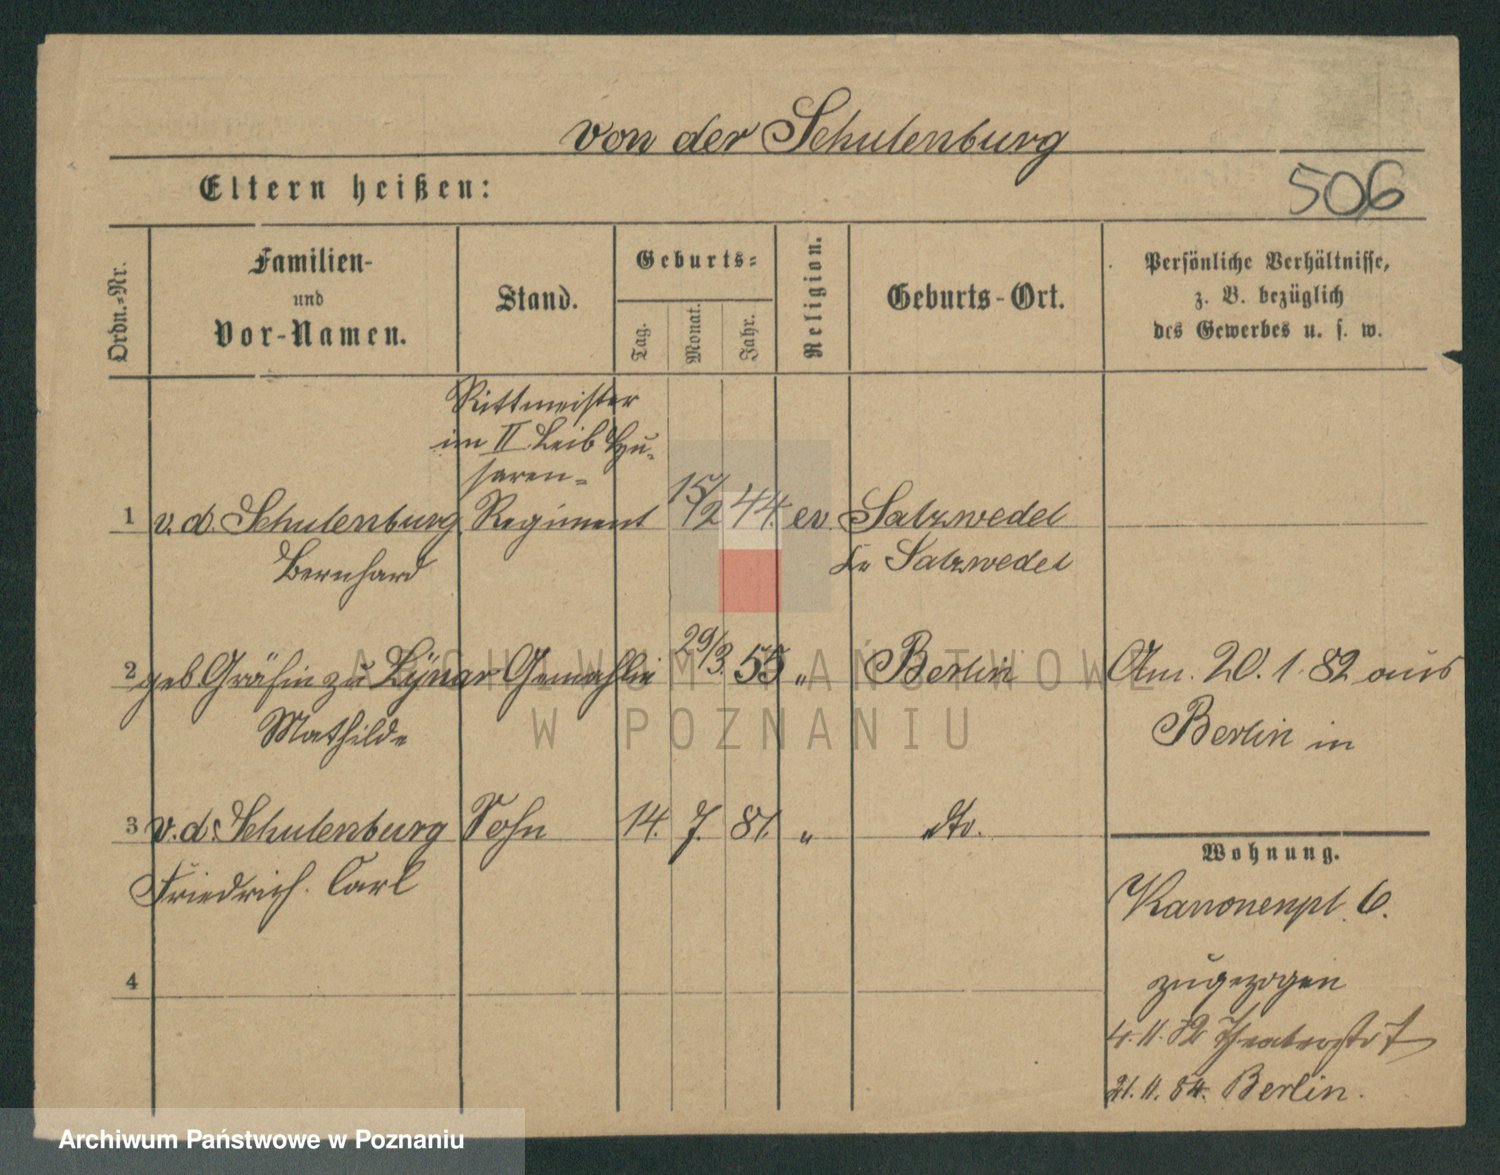 von der Schulenburg
Eltern heißen:
506
Ordn.-Nr.
Familien-
und
Vor-Namen.
Stand.
Geburts-
Tag.
Monat.
Jahr.
Religion.
Geburts-Ort.
Persönliche Verhältnisse,
z. B. bezüglich
des Gewerbes u. s. w.
Rittmeister
im II Leib Hu-
saren-
1 v. d. Schulenburg Regiment 15/2 44. ev Salzwedel
Bernhard Kr Salzwedel
2 geb Gräfin zu Lÿnar Gemahlin 29/3. 55 " Berlin Am. 20. 1. 82 aus
Mathilde Berlin in
3 v. d. Schulenburg Sohn 14. 7. 81. " dto.
Friedrich. Carl
Wohnung.
Kanonenpl. 6.
4 zugezogen
4. 11. 82 Theaterstr 7
21. 11. 84. Berlin.
ARCHIWUM PAŃSTWOWE
W POZNANIU
Archiwum Państwowe w Poznaniu